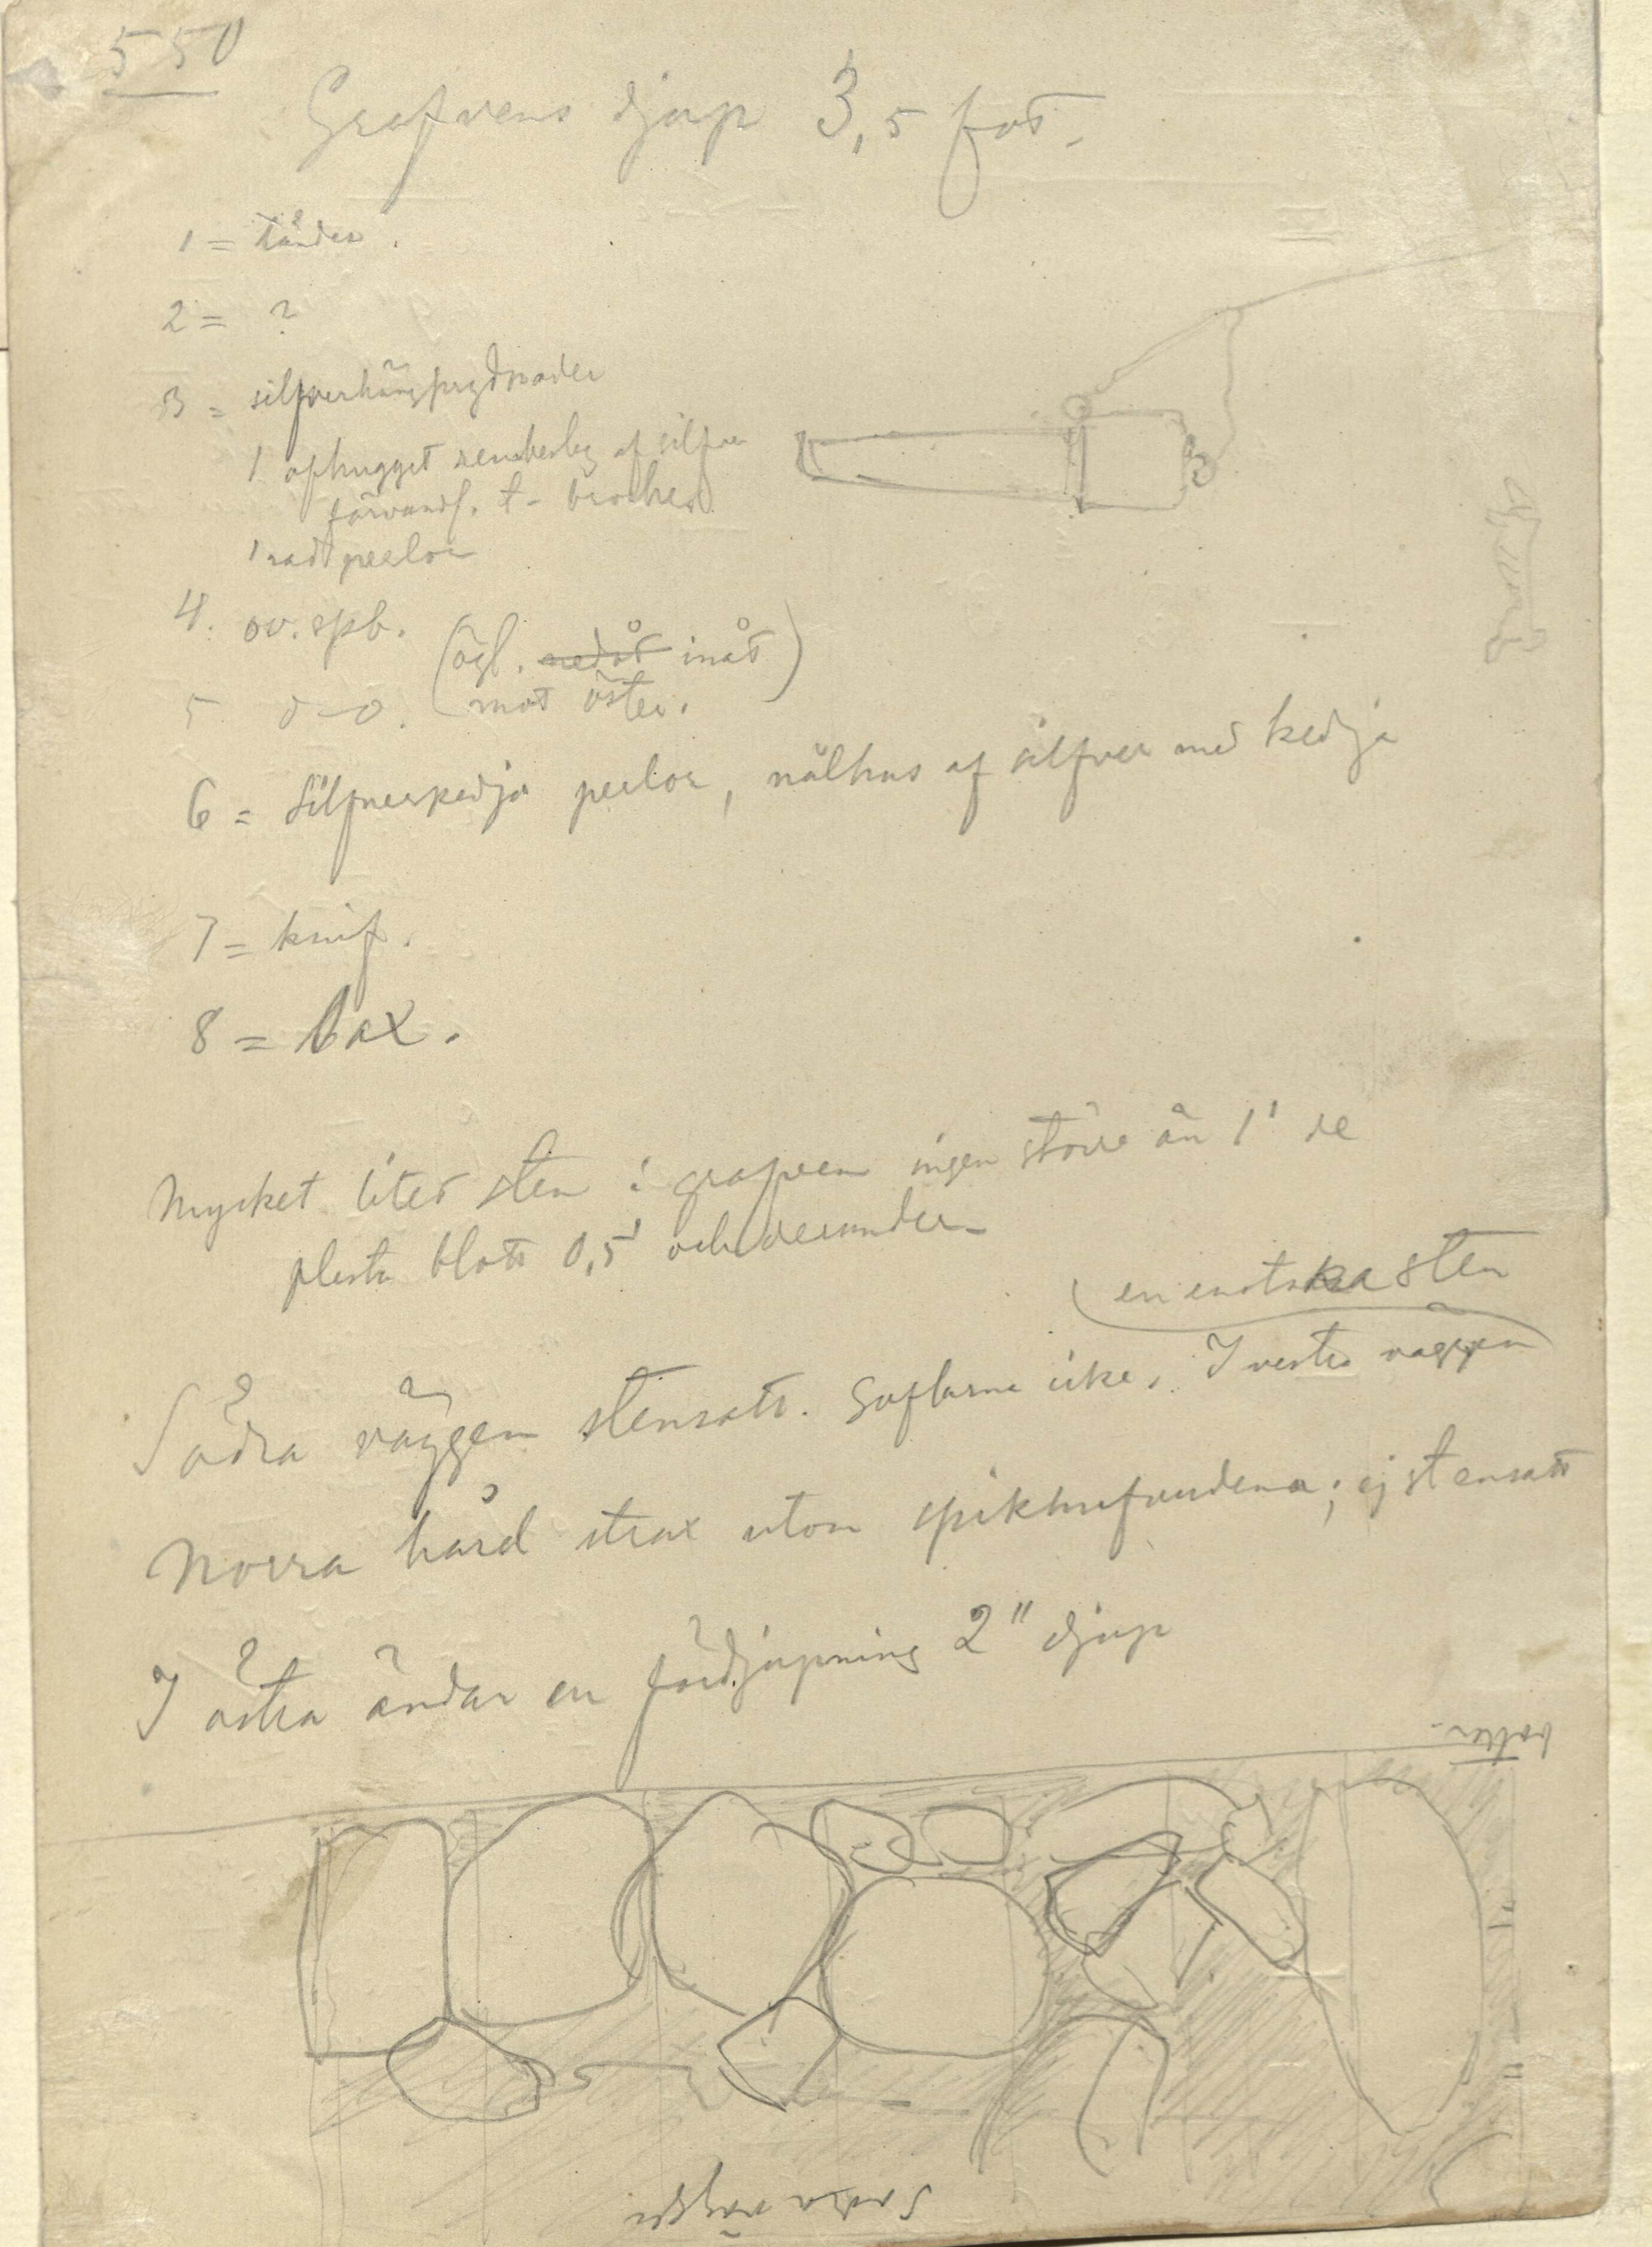 550
Grafvens djup 3,5 fot.
1 = tänder.
2 = ?
3 = silfverhängprydnader
1 afhugget rembeslag af silfver
förvandl. t. broche
1 rad perlor
4. ov. spb.
(ögl. nedåt inåt)
5 d-o. mot öster.
6 = Silfverkedja perlor, nålhus af silfver med kedja
7 = knif.
8 = sax.
Mycket litet sten i grafven ingen större än 1' de
flesta blott 0,5' och derunder
en enstaka sten
Södra väggen stensatt. Gaflarne icke. I vestra väggen
Norra hård strax utom spikhufvudena; ej stensatt
I östra ändan en fördjupning 2" djup
botten.
1"
Södra väggen